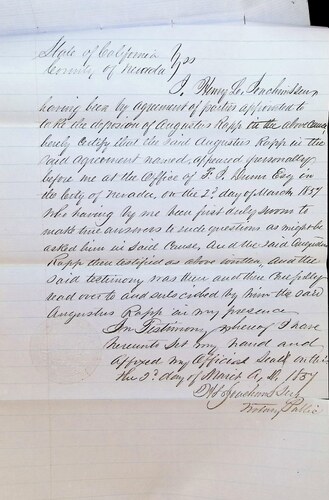 State of California
County of Nevada } ss
I, Henry
having been by agreement of parties appointed to
to the deposion of Augustus Rapp in the above Cause,
hereby certify that the said Augustus Rapp in the
said Agreement named, appeared personally
before me at the Office of F. P. Dunn Esq in
the City of Nevada, on the 2d day of March 1857
who having by me been first duly sworn to
make true answers to such questions as might be
asked him in said Cause, And the said Augustus
Rapp then testified as above written, And the
said testimony was then and there carefully
read over to and subscribed by him the said
Augustus Rapp in my presence
In Testimony whereof I have
hereunto set my hand and
affixed my Official Seal on this
the 2d day of March A.D. 1857
Notary Public